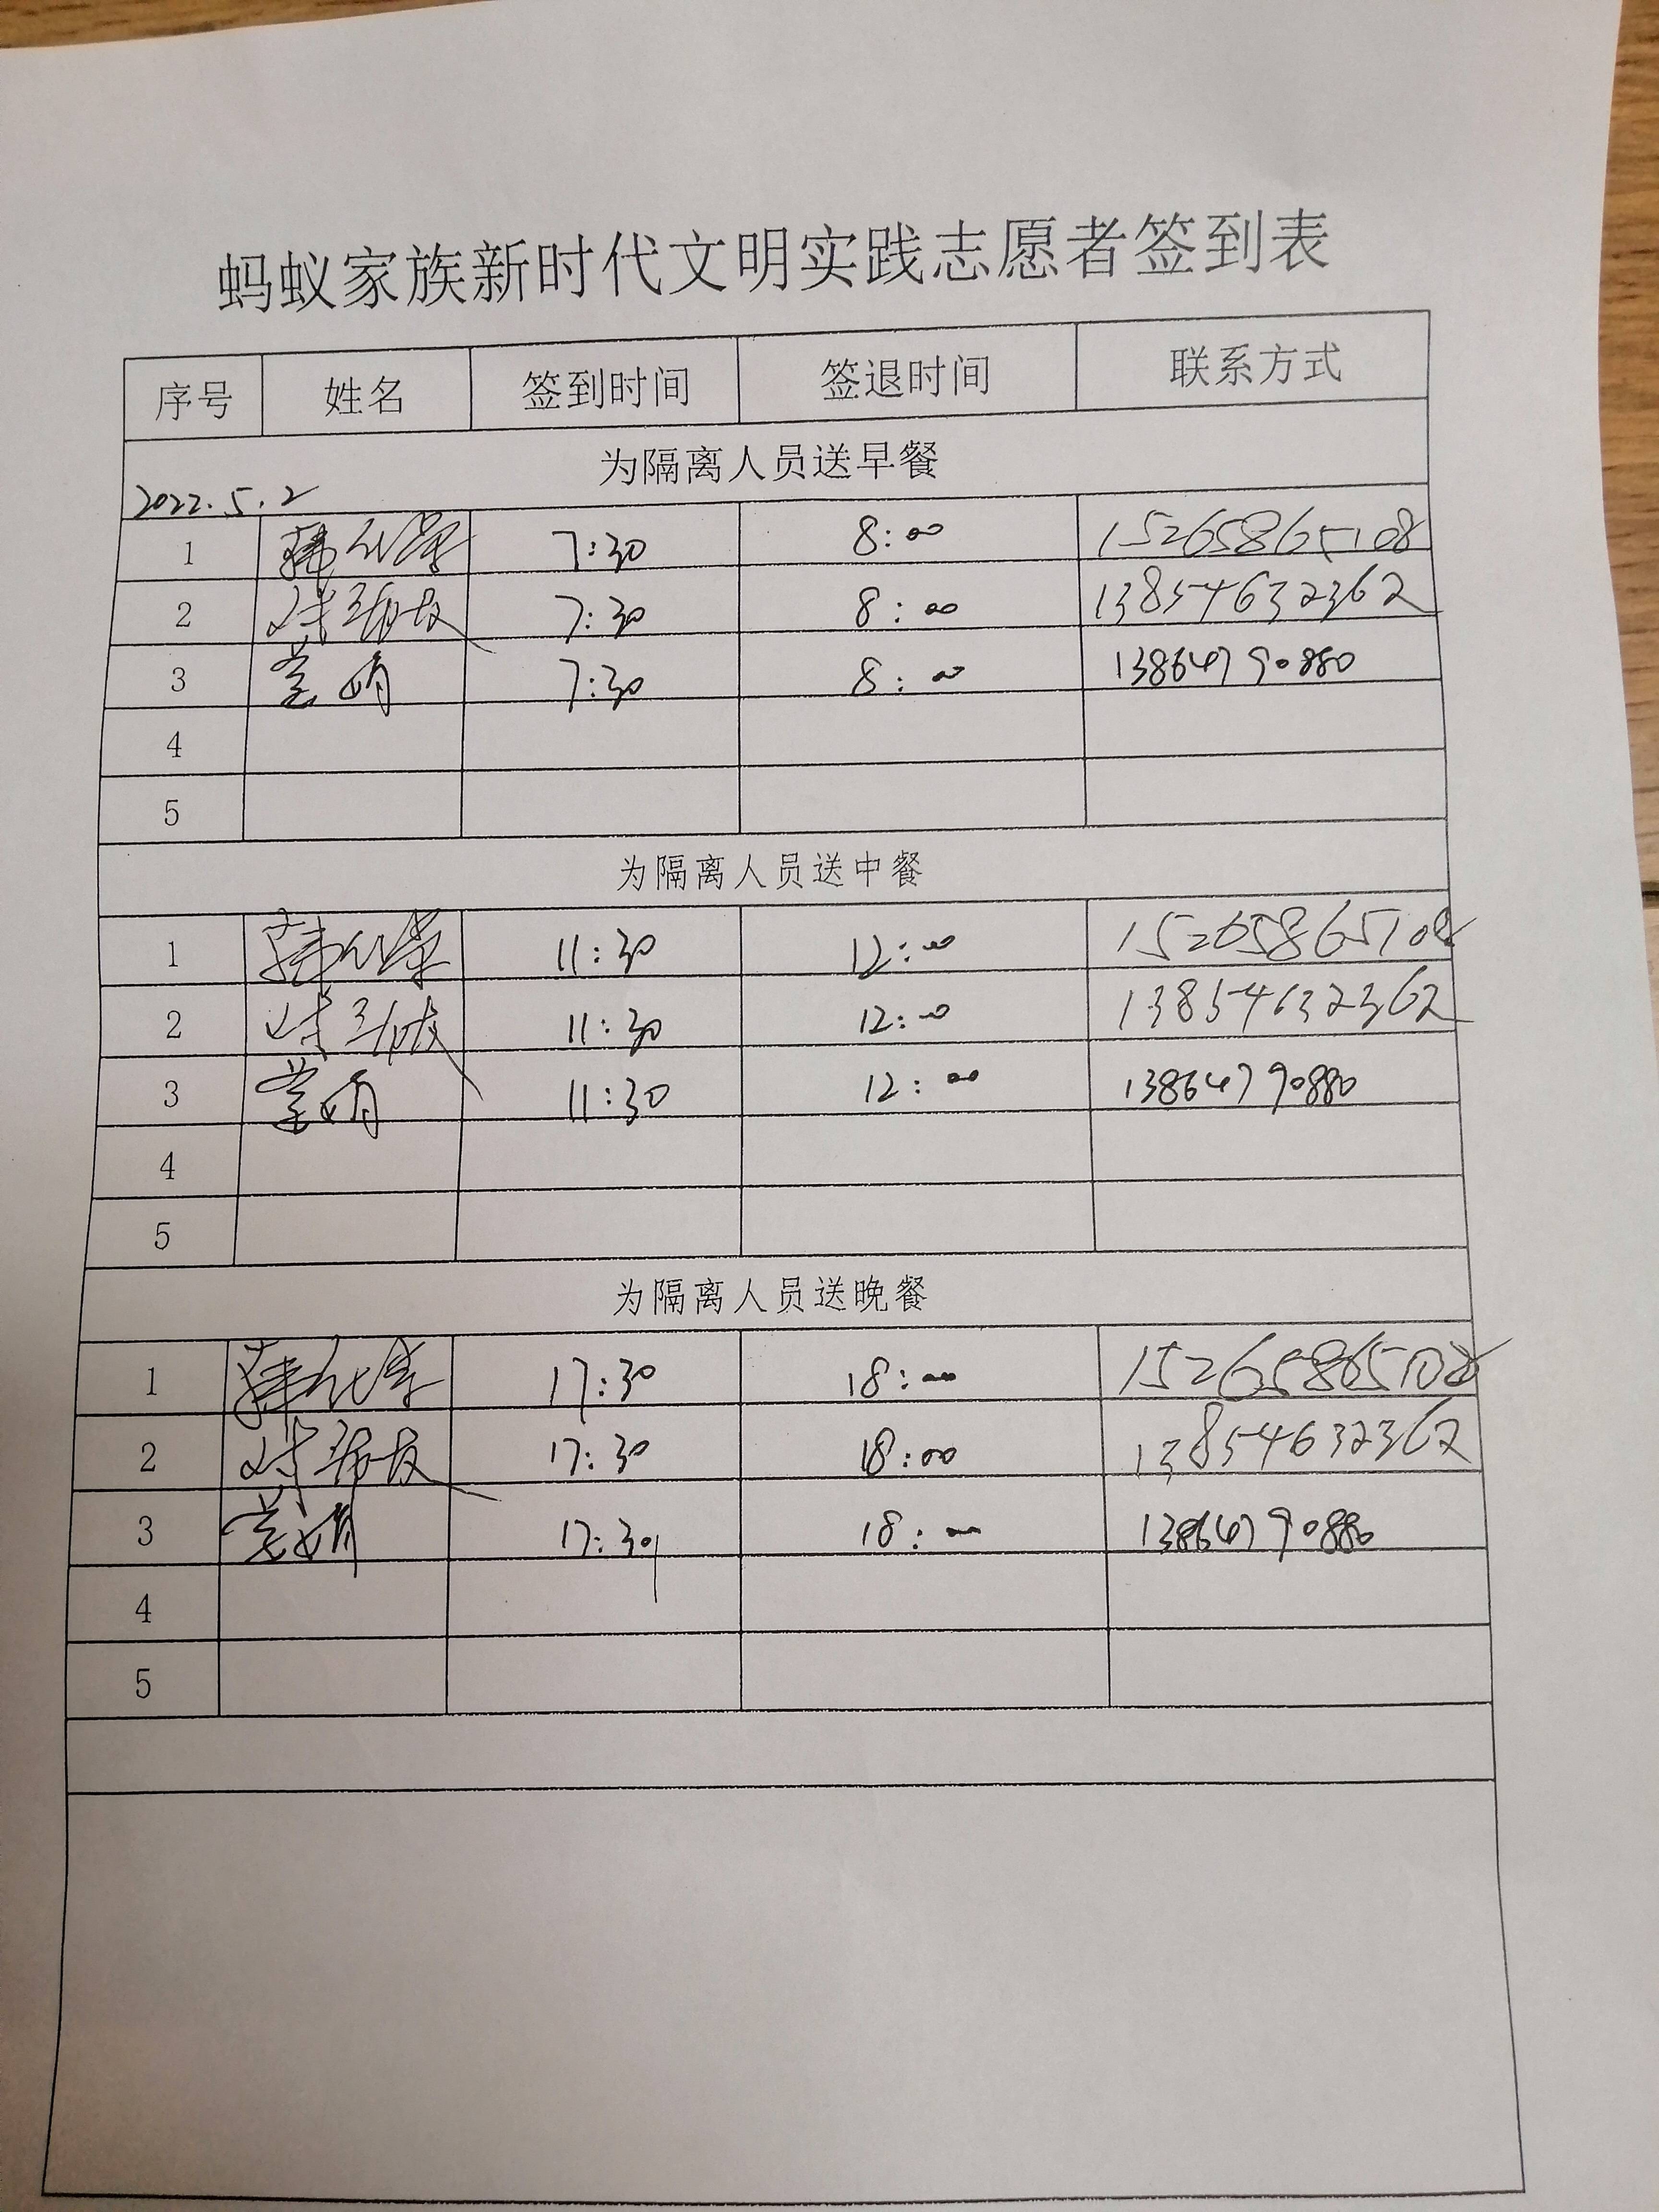 蚂蚁家族新时代文明实践志愿者签到表
序号 姓名 签到时间 签退时间 联系方式
为隔离人员送早餐
2022.5.2
1 7:30 8:00 15265865108
2 7:30 8:00 13854632362
3 7:30 8:00 13864790880
4
5
为隔离人员送中餐
1 11:30 12:00 15265865108
2 11:30 12:00 13854632362
3 11:30 12:00 13864790880
4
5
为隔离人员送晚餐
1 17:30 18:00 15265865108
2 17:30 18:00 13854632362
3 17:30 18:00 13864790880
4
5